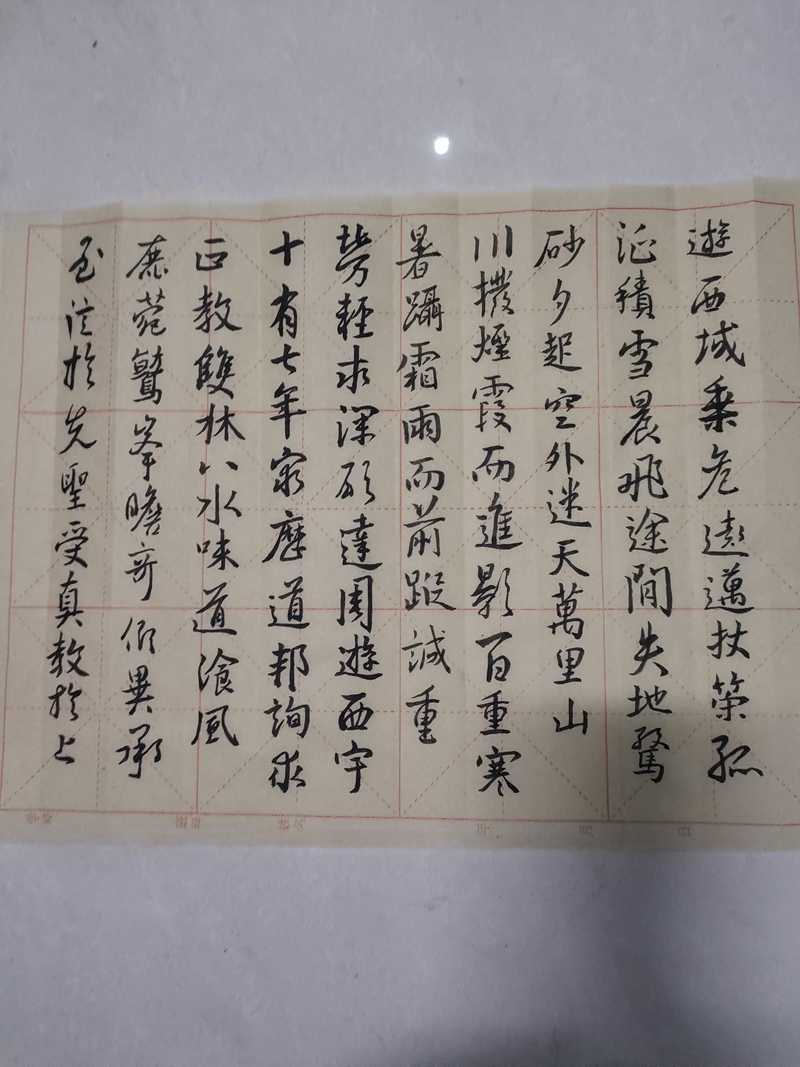 遊西域乘危遠邁杖策孤
征積雪晨飛途閒失地驚
砂夕起空外迷天萬里山
川撥煙霞而進影百重寒
暑躡霜雨而前蹤誠重
勞輕求深願達周遊西宇
十有七年窮歷道邦詢求
正教雙林八水味道湌風
鹿菀鷲峯瞻奇仰異承
至言於先聖受真教於上